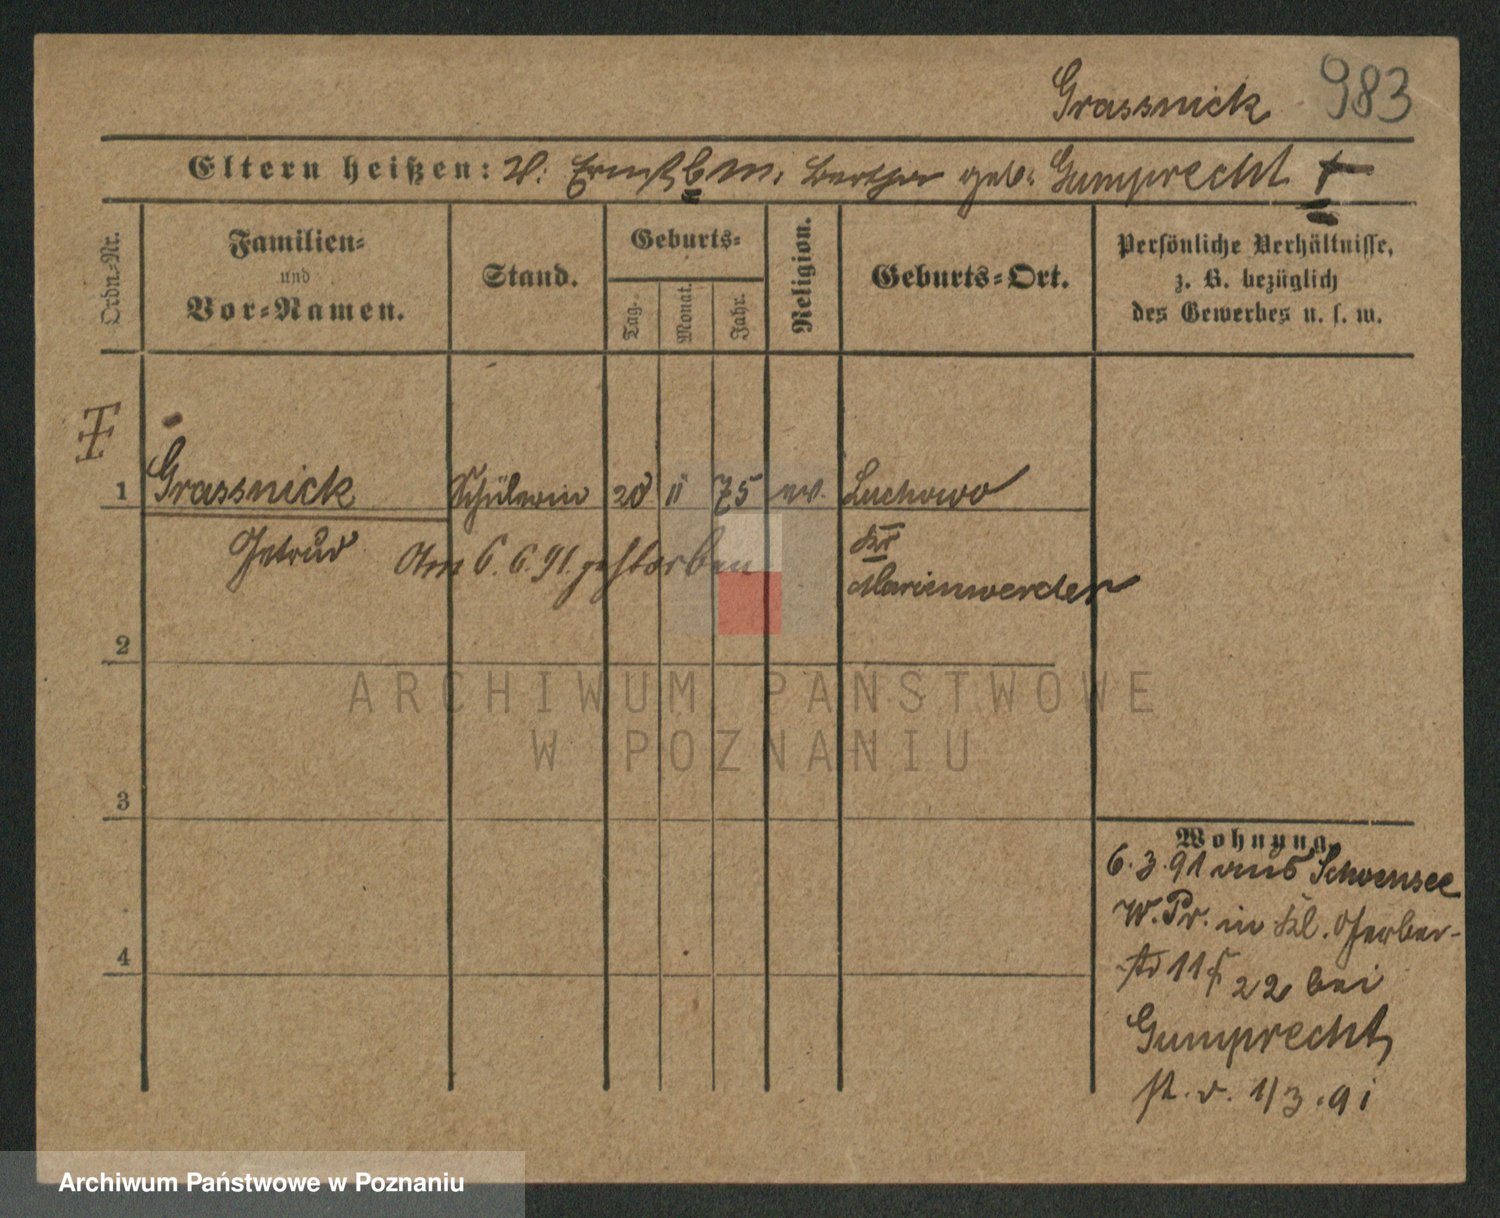 Grassnick 983
Eltern heißen: V. Ernst M. Bertha geb. Gumprecht †
Ordn.-Nr.
Familien-
und
Vor-Namen.
Stand.
Geburts-
Tag.
Monat.
Jahr.
Religion.
Geburts-Ort.
Persönliche Verhältnisse,
z. B. bezüglich
des Gewerbes u. s. w.
1 Grassnick Schülerin 20 11 75 ev. Luchowo
Getrud Am 6. 6. 91. gestorben Kr
Marienwerder
2
ARCHIWUM PAŃSTWOWE
W POZNANIU
3
Wohnung.
6. 3. 91 aus Schoensee
W. Pr. in Kl. Gerber-
4
22 bei
Gumprecht
st. v. 1/3. 91
Archiwum Państwowe w Poznaniu